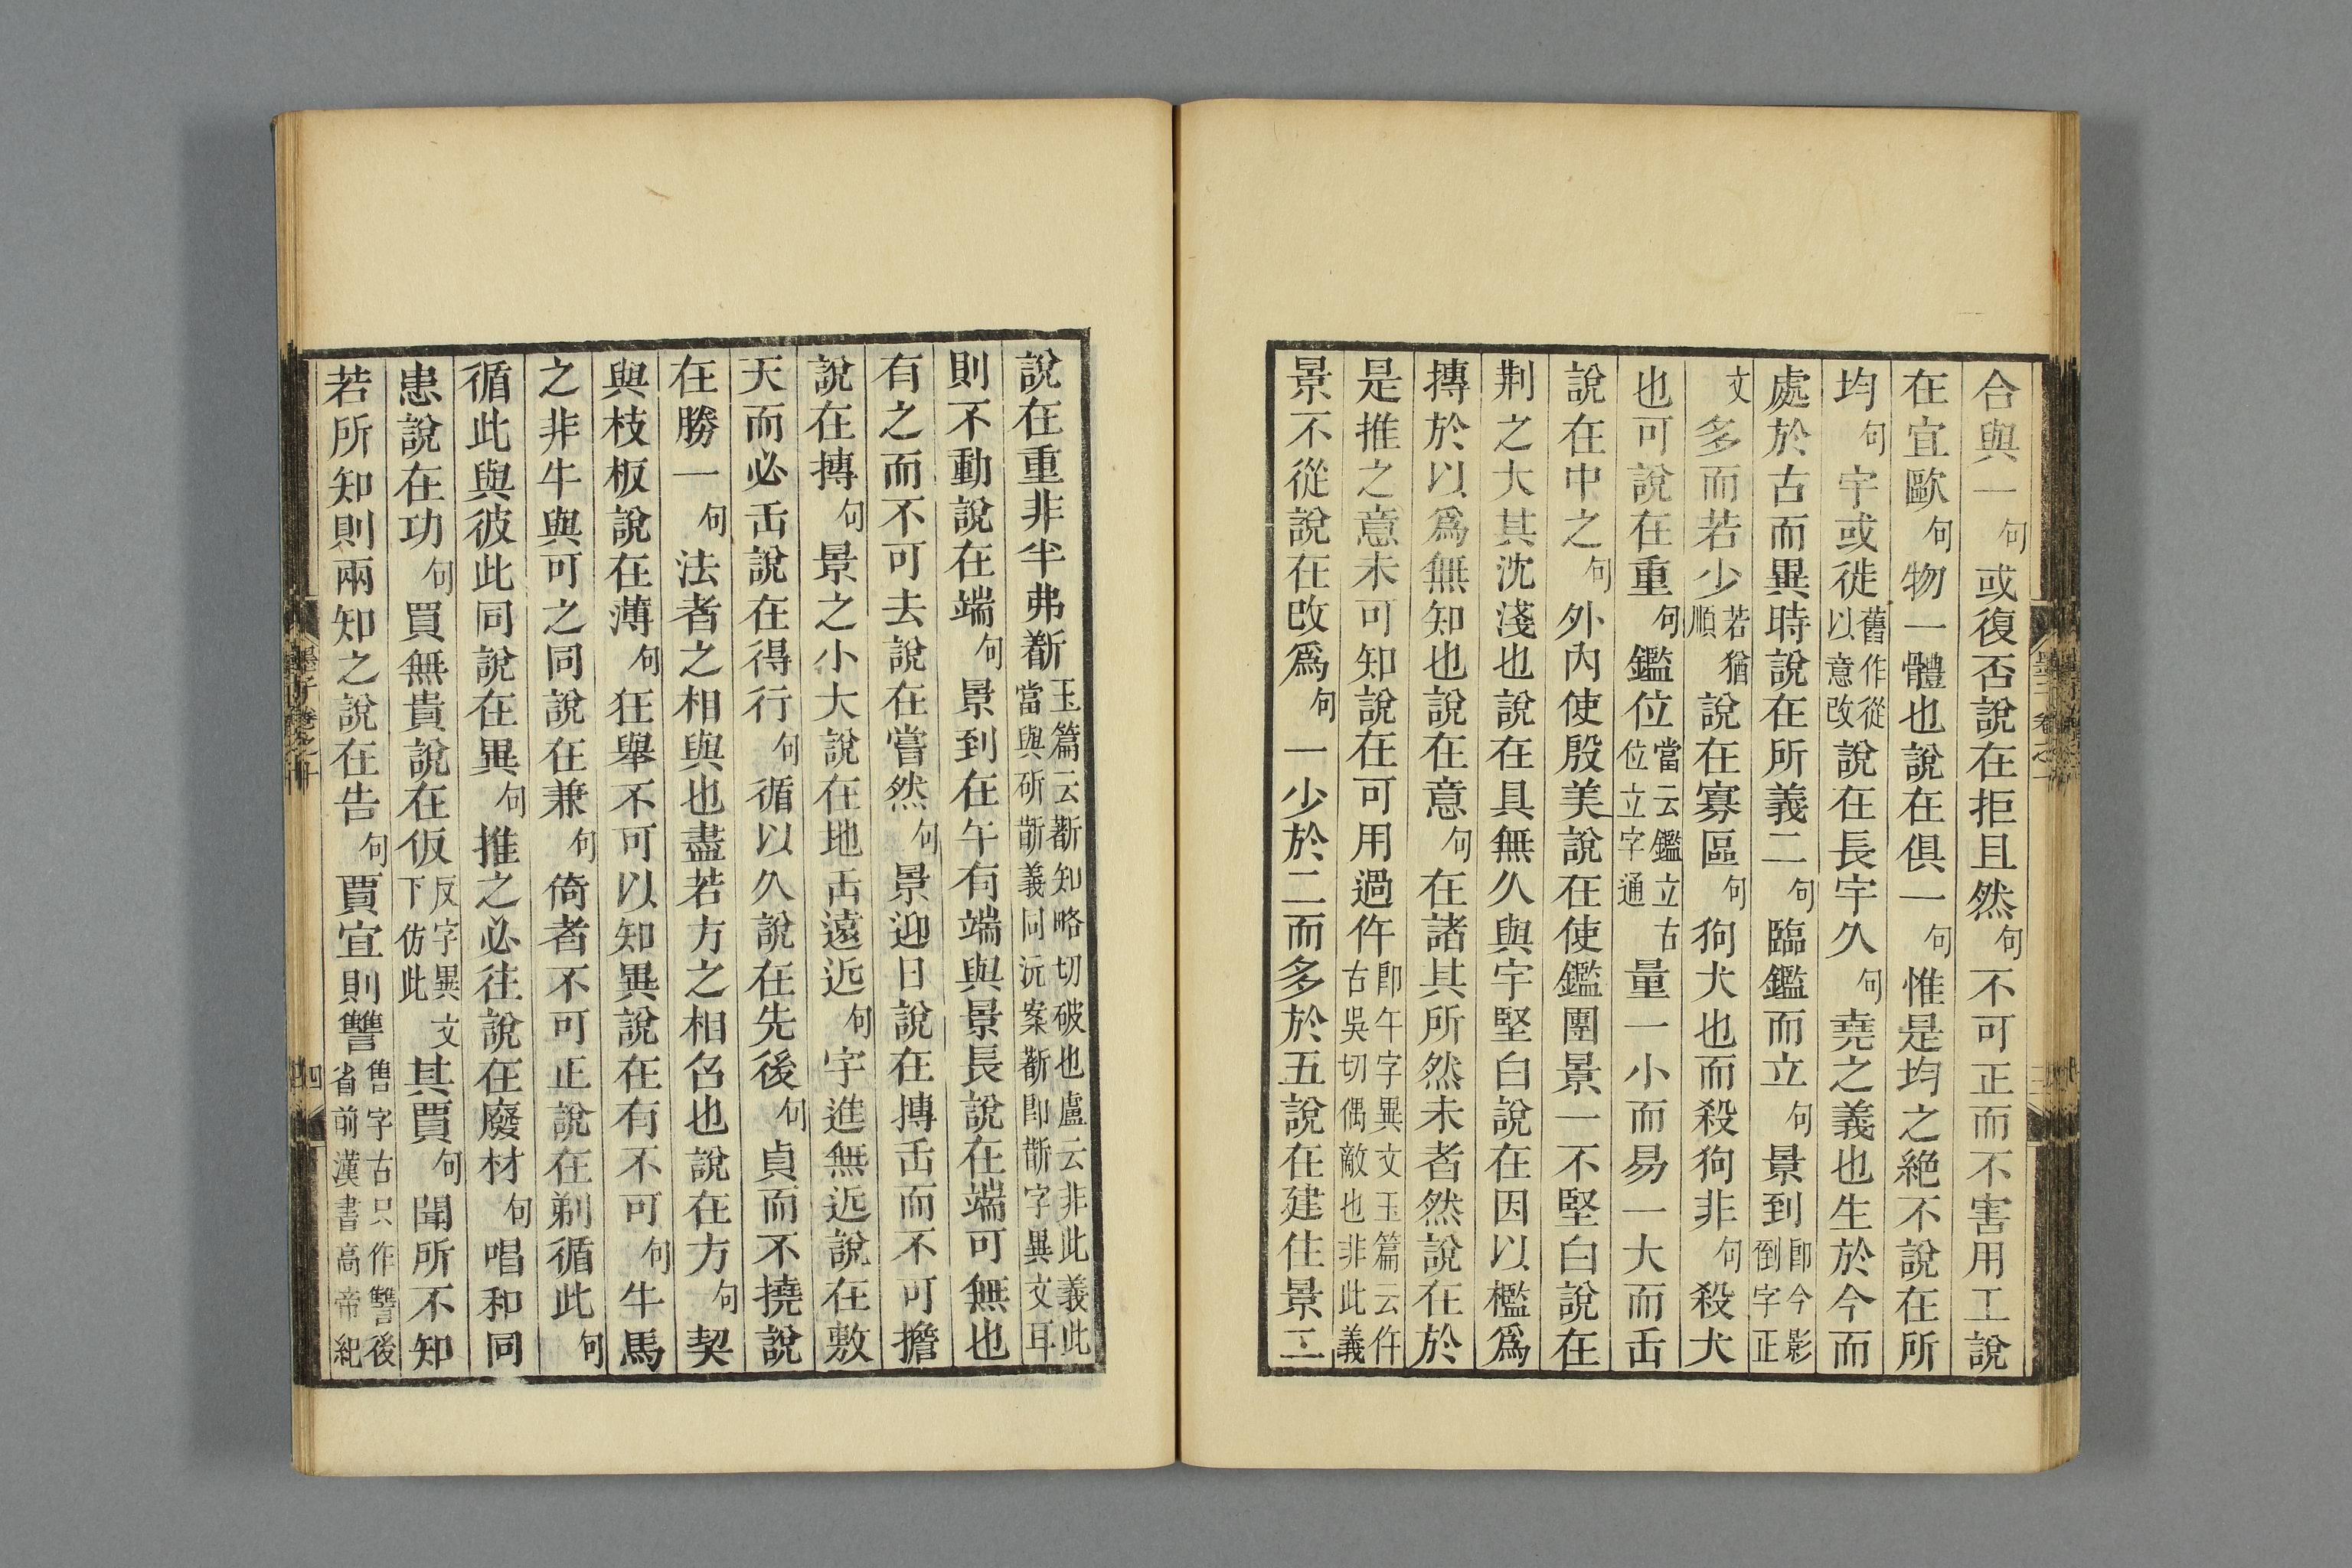 合與一句或復否說在拒且然句不可正而不害用工說
在宜歐句物一體也說在俱一句惟是均之絕不說在所
均句宇或徙舊作從以意改說在長宇久句堯之義也生於今而
處於古而異時說在所義二句臨鑑而立句景到卽今影倒字正
文多而若少若猶順說在寡區句狗犬也而殺狗非句殺犬
也可說在重句鑑位當云鑑立古位立字通量一小而易一大而𠮷
說在中之句外內使殷美說在使鑑團景一不堅白說在
荆之大其沈淺也說在具無久與宇堅白說在因以檻爲
摶於以爲無知也說在意句在諸其所然未者然說在於
是推之意未可知說在可用過仵卽午字異文玉篇云仵古吳切偶敵也非此義
景不從說在改爲句一少於二而多於五說在建住景二
說在重非半弗䉼玉篇云䉼知略切破也盧云非此義此當與斫斱義同沅案䉼卽斱字異文耳
則不動說在端句景到在午有端與景長說在端可無也
有之而不可去說在嘗然句景迎日說在摶𠮷而不可擔
說在摶句景之小大說在地𠮷遠近句宇進無近說在敷
天而必𠮷說在得行句循以久說在先後句貞而不撓說
在勝一句法者之相與也盡若方之相召也說在方句契
與枝板說在薄句狂舉不可以知異說在有不可句牛馬
之非牛與可之同說在兼句倚者不可正說在剃循此句
循此與彼此同說在異句推之必往說在廢材句唱和同
患說在功句買無貴說在仮反字異文下仿此其賈句聞所不知
若所知則兩知之說在告句賈宜則讐售字古只作讐後省前漢書高帝紀
墨子卷之十
四